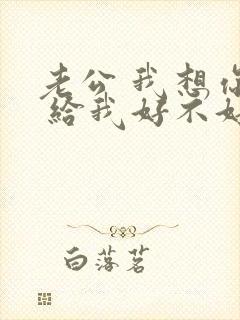 老公我想你
給我好不好
白落茗